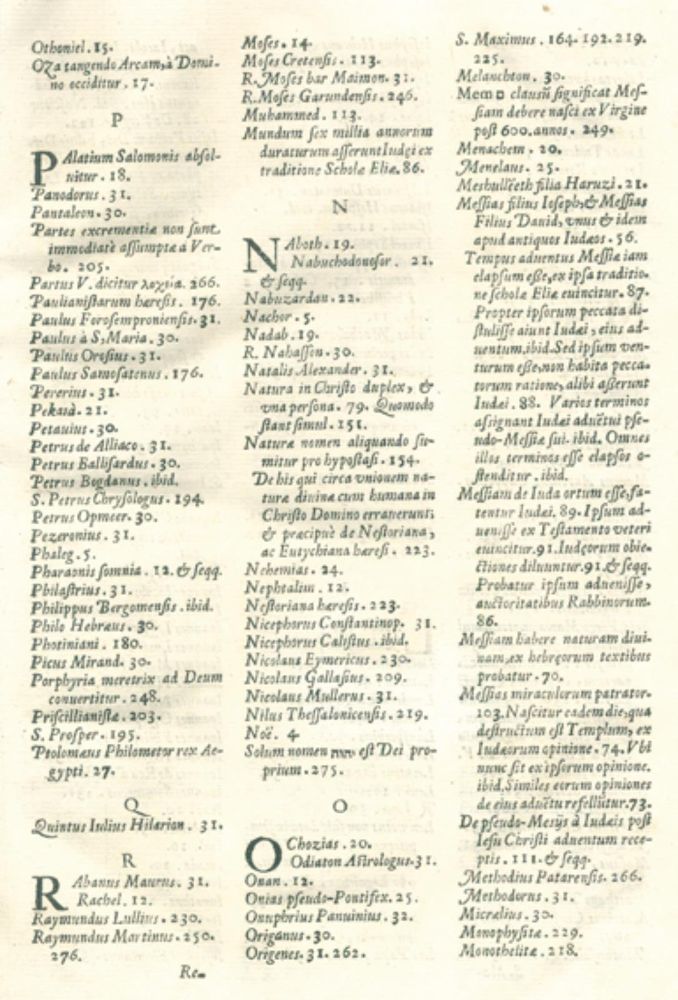 Othoniel. 15.
Oza tangendo Arcam, à Domi-
no occiditur. 17.
P
PAlatium Salomonis absol-
uitur. 18.
Panodorus. 31.
Pantaleon. 30.
Partes excrementiæ non sunt
immediatè assumptæ a Ver-
bo. 205.
Partus V. dicitur λοχεία. 266.
Paulianistarum hæresis. 176.
Paulus Forosemproniensis. 31.
Paulus à S. Maria. 30.
Paulus Orosius. 31.
Paulus Samosatenus. 176.
Pererius. 31.
Pekaià. 21.
Petauius. 30.
Petrus de Alliaco. 31.
Petrus Ballisardus. 30.
Petrus Bogdanus. ibid.
S. Petrus Chrysologus. 194.
Petrus Opmeer. 30.
Pezeronius. 31.
Phaleg. 5.
Pharaonis somnia. 12. & seqq.
Philastrius. 31.
Philippus Bergomensis. ibid.
Philo Hebræus. 30.
Photiniani. 180.
Picus Mirand. 30.
Porphyria meretrix ad Deum
conuertitur. 248.
Priscillianistæ. 203.
S. Prosper. 195.
Ptolomæus Philometor rex Ae-
gypti. 27.
Q
Quintus Iulius Hilarion. 31.
R
RAbanus Maurus. 31.
Rachel. 12.
Raymundus Lullius. 230.
Raymundus Martinus. 250.
276.
Re-
Moses. 14.
Moses Cretensis. 113.
R. Moses bar Maimon. 31.
R. Moses Garundensis. 246.
Muhammed. 113.
Mundum sex millia annorum
duraturum asserunt Iudęi ex
traditione Scholæ Eliæ. 86.
N
NAboth. 19.
Nabuchodonosor. 21.
& seqq.
Nabuzardan. 22.
Nachor. 5.
Nadab. 19.
R. Nahasson. 30.
Natalis Alexander. 31.
Natura in Christo duplex, &
vna persona. 79. Quomodo
stant simul. 151.
Naturæ nomen aliquando su-
mitur pro hypostasi. 154.
De his qui circa vnionem na-
turæ diuinæ cum humana in
Christo Domino errauerunt
& præcipuè de Nestoriana,
ac Eutychiana hæresi. 223.
Nehemias. 24.
Nephtalim. 12.
Nestoriana hæresis. 223.
Nicephorus Constantinop. 31.
Nicephorus Calistus. ibid.
Nicolaus Eymericus. 230.
Nicolaus Gallasius. 209.
Nicolaus Mullerus. 31.
Nilus Thessalonicensis. 219.
Noë. 4
Solum nomen est Dei pro-
prium. 275.
O
OChozias. 20.
Odiaton Astrologus. 31.
Onan. 12.
Onias pseudo-Pontifex. 25.
Onuphrius Panuinius. 32.
Origanus. 30.
Origenes. 31. 262.
S. Maximus. 164. 192. 219.
225.
Melancthon. 30.
Mem ם clausũ significat Mes-
siam debere nasci ex Virgine
post 600. annos. 249.
Menachem. 20.
Menelaus. 25.
Meshullęeth filia Haruzi. 21.
Messias filius Ioseph, & Messias
Filius Dauid, vnus & idem
apud antiquos Iudæos. 56.
Tempus aduentus Messiæ iam
elapsum esse, ex ipsa traditio-
ne scholæ Eliæ euincitur. 87.
Propter ipsorum peccata di-
stulisse aiunt Iudæi, eius ad-
uentum. ibid. Sed ipsum ven-
turum esse, non habita pecca-
torum ratione, alibi asserunt
Iudæi. 88. Varios terminos
assignant Iudæi aduẽtui pse-
udo-Messiæ sui. ibid. Omnes
illos terminos esse elapsos o-
stenditur. ibid.
Messiam de Iuda ortum esse, fa-
tentur Iudæi. 89. Ipsum ad-
uenisse ex Testamento veteri
euincitur. 91. Iudęorum obie-
ctiones diluuntur. 91. & seqq.
Probatur ipsum aduenisse,
auctoritatibus Rabbinorum.
86.
Messiam habere naturam diui-
nam, ex hebręorum textibus
probatur. 70.
Messias miraculorum patrator.
103. Nascitur eadem die, qua
destructum est Templum, ex
Iudæorum opinione. 74. Vbi
nunc sit ex ipsorum opinione.
ibid. Similes eorum opiniones
de eius aduẽtu refellũtur. 73.
De pseudo-Messijs à Iudæis post
Iesu Christi aduentum rece-
ptis. 111. & seqq.
Methodius Patarensis. 266.
Methodorus. 31.
Micrælius. 30.
Monophysitæ. 229.
Monothelitæ. 218.